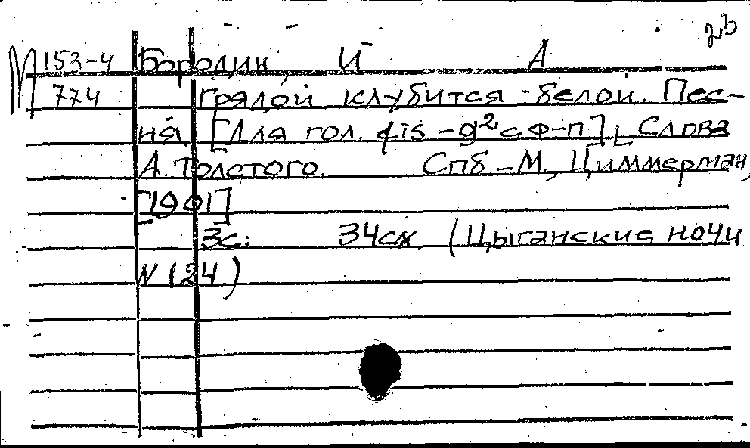 23
М 153-4 Бородин, И А
774 Грядой клубится белой. Пес-
ня. [Для гол. fis-g² с ф-п], Слова
А. Толстого. Спб-М, Циммерман,
[1901]
3с. 34см (Цыганские ночи
N 124)